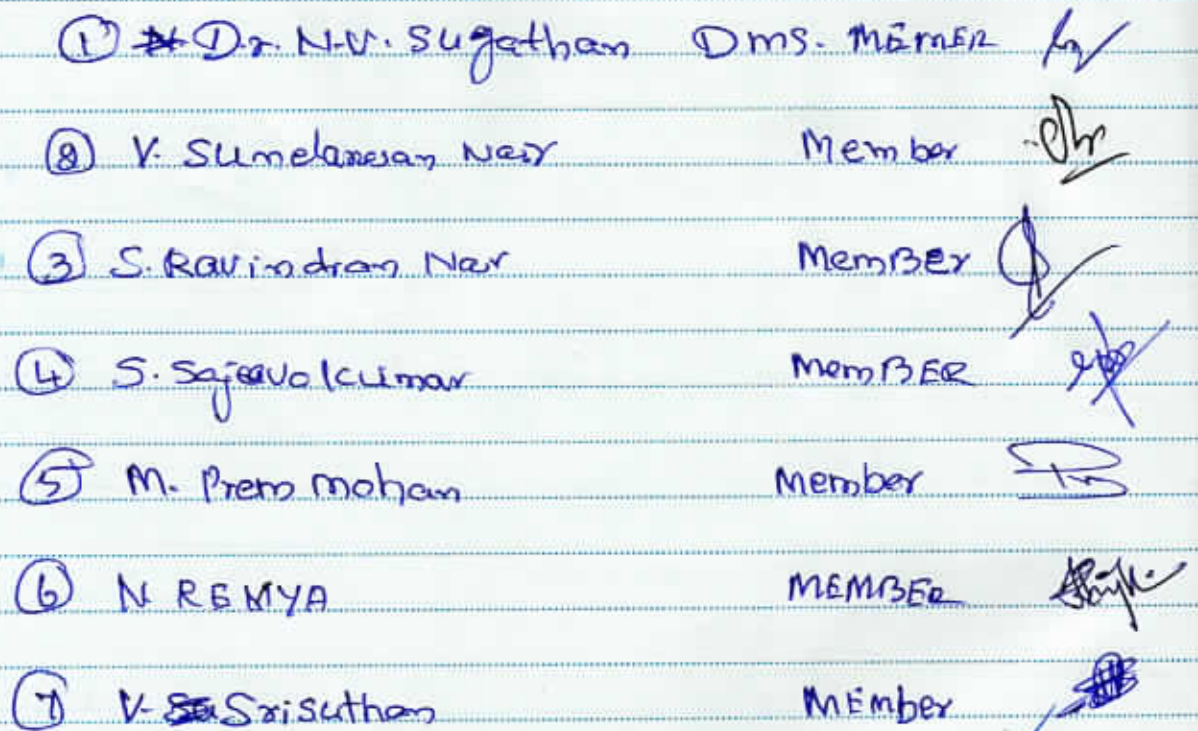 ① Dr. N.V. Sugathan Dms. MEmER
② V. Sumdaresan Nair Member
③ S. Ravindran Nair MemBer
④ S. Sajeevakumar MemBER
⑤ M. Prem mohan Member
⑥ N REMYA MEMBER
⑦ V. Srisuthan MEmber